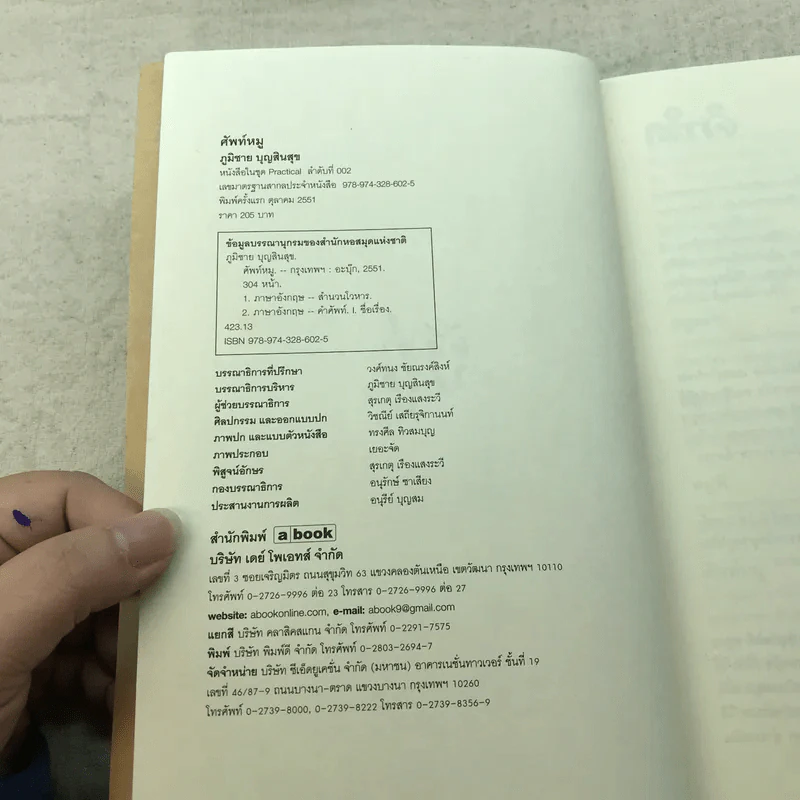 ศัพท์หมู
ภูมิชาย บุญสินสุข
หนังสือในชุด Practical ลำดับที่ 002
เลขมาตรฐานสากลประจำหนังสือ 978-974-328-602-5
พิมพ์ครั้งแรก ตุลาคม 2551
ราคา 205 บาท
ข้อมูลบรรณานุกรมของสำนักหอสมุดแห่งชาติ
ภูมิชาย บุญสินสุข.
ศัพท์หมู. -- กรุงเทพฯ : อะบุ๊ก, 2551.
304 หน้า.
1. ภาษาอังกฤษ -- สำนวนโวหาร.
2. ภาษาอังกฤษ -- คำศัพท์. I. ชื่อเรื่อง.
423.13
ISBN 978-974-328-602-5
บรรณาธิการที่ปรึกษา วงศ์ทนง ชัยณรงค์สิงห์
บรรณาธิการบริหาร ภูมิชาย บุญสินสุข
ผู้ช่วยบรรณาธิการ สุรเกตุ เรืองแสงระวี
ศิลปกรรม และออกแบบปก วิชณีย์ เสถียรุจิกานนท์
ภาพปก และแบบตัวหนังสือ ทรงศีล ทิวสมบุญ
ภาพประกอบ เยอะจัด
พิสูจน์อักษร สุรเกตุ เรืองแสงระวี
กองบรรณาธิการ อนุรักษ์ ชาเสียง
ประสานงานการผลิต อนุรีย์ บุญสม
สำนักพิมพ์ a book
บริษัท เดย์ โพเอทส์ จำกัด
เลขที่ 3 ซอยเจริญมิตร ถนนสุขุมวิท 63 แขวงคลองตันเหนือ เขตวัฒนา กรุงเทพฯ 10110
โทรศัพท์ 0-2726-9996 ต่อ 23 โทรสาร 0-2726-9996 ต่อ 27
website: abookonline.com, e-mail: abook9@gmail.com
แยกสี บริษัท คลาสิคสแกน จำกัด โทรศัพท์ 0-2291-7575
พิมพ์ บริษัท พิมพ์ดี จำกัด โทรศัพท์ 0-2803-2694-7
จัดจำหน่าย บริษัท ซีเอ็ดยูเคชั่น จำกัด (มหาชน) อาคารเนชั่นทาวเวอร์ ชั้นที่ 19
เลขที่ 46/87-9 ถนนบางนา-ตราด แขวงบางนา กรุงเทพฯ 10260
โทรศัพท์ 0-2739-8000, 0-2739-8222 โทรสาร 0-2739-8356-9